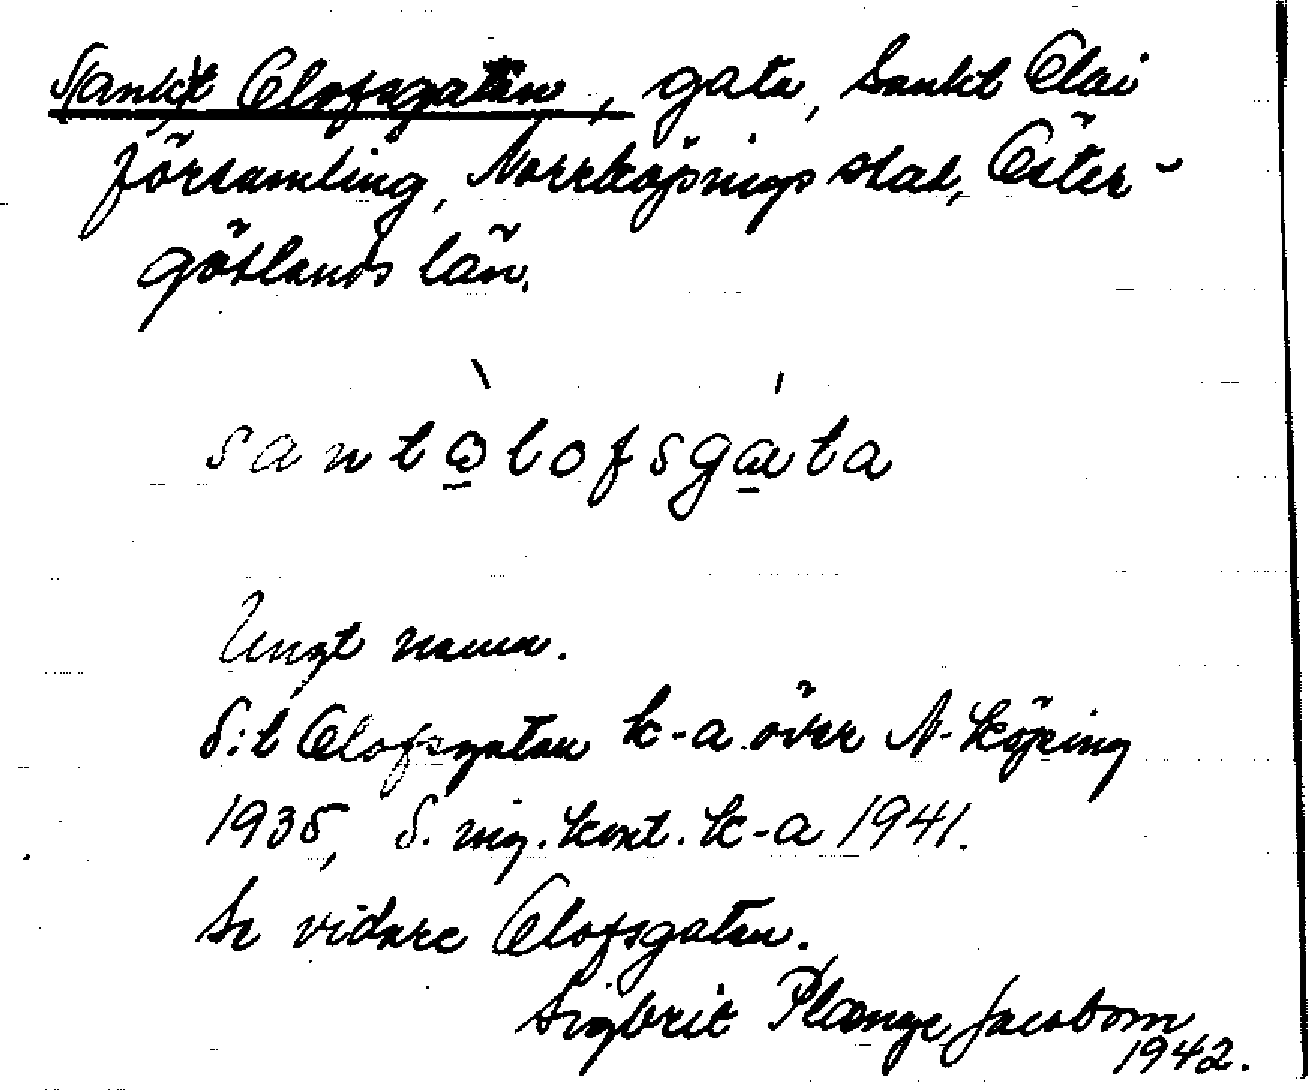 Sankt Olofsgatan, gata, Sankt Olai
församling, Norrköpings stad, Öster-
götlands län.
santòlofsgata
Ungt namn.
S:t Olofsgatan k-a över N-köping
1935, S. ing. kont. k-a 1941.
Se vidare Olofsgatan.
Sigbrit Plænge Jacobson
1942.